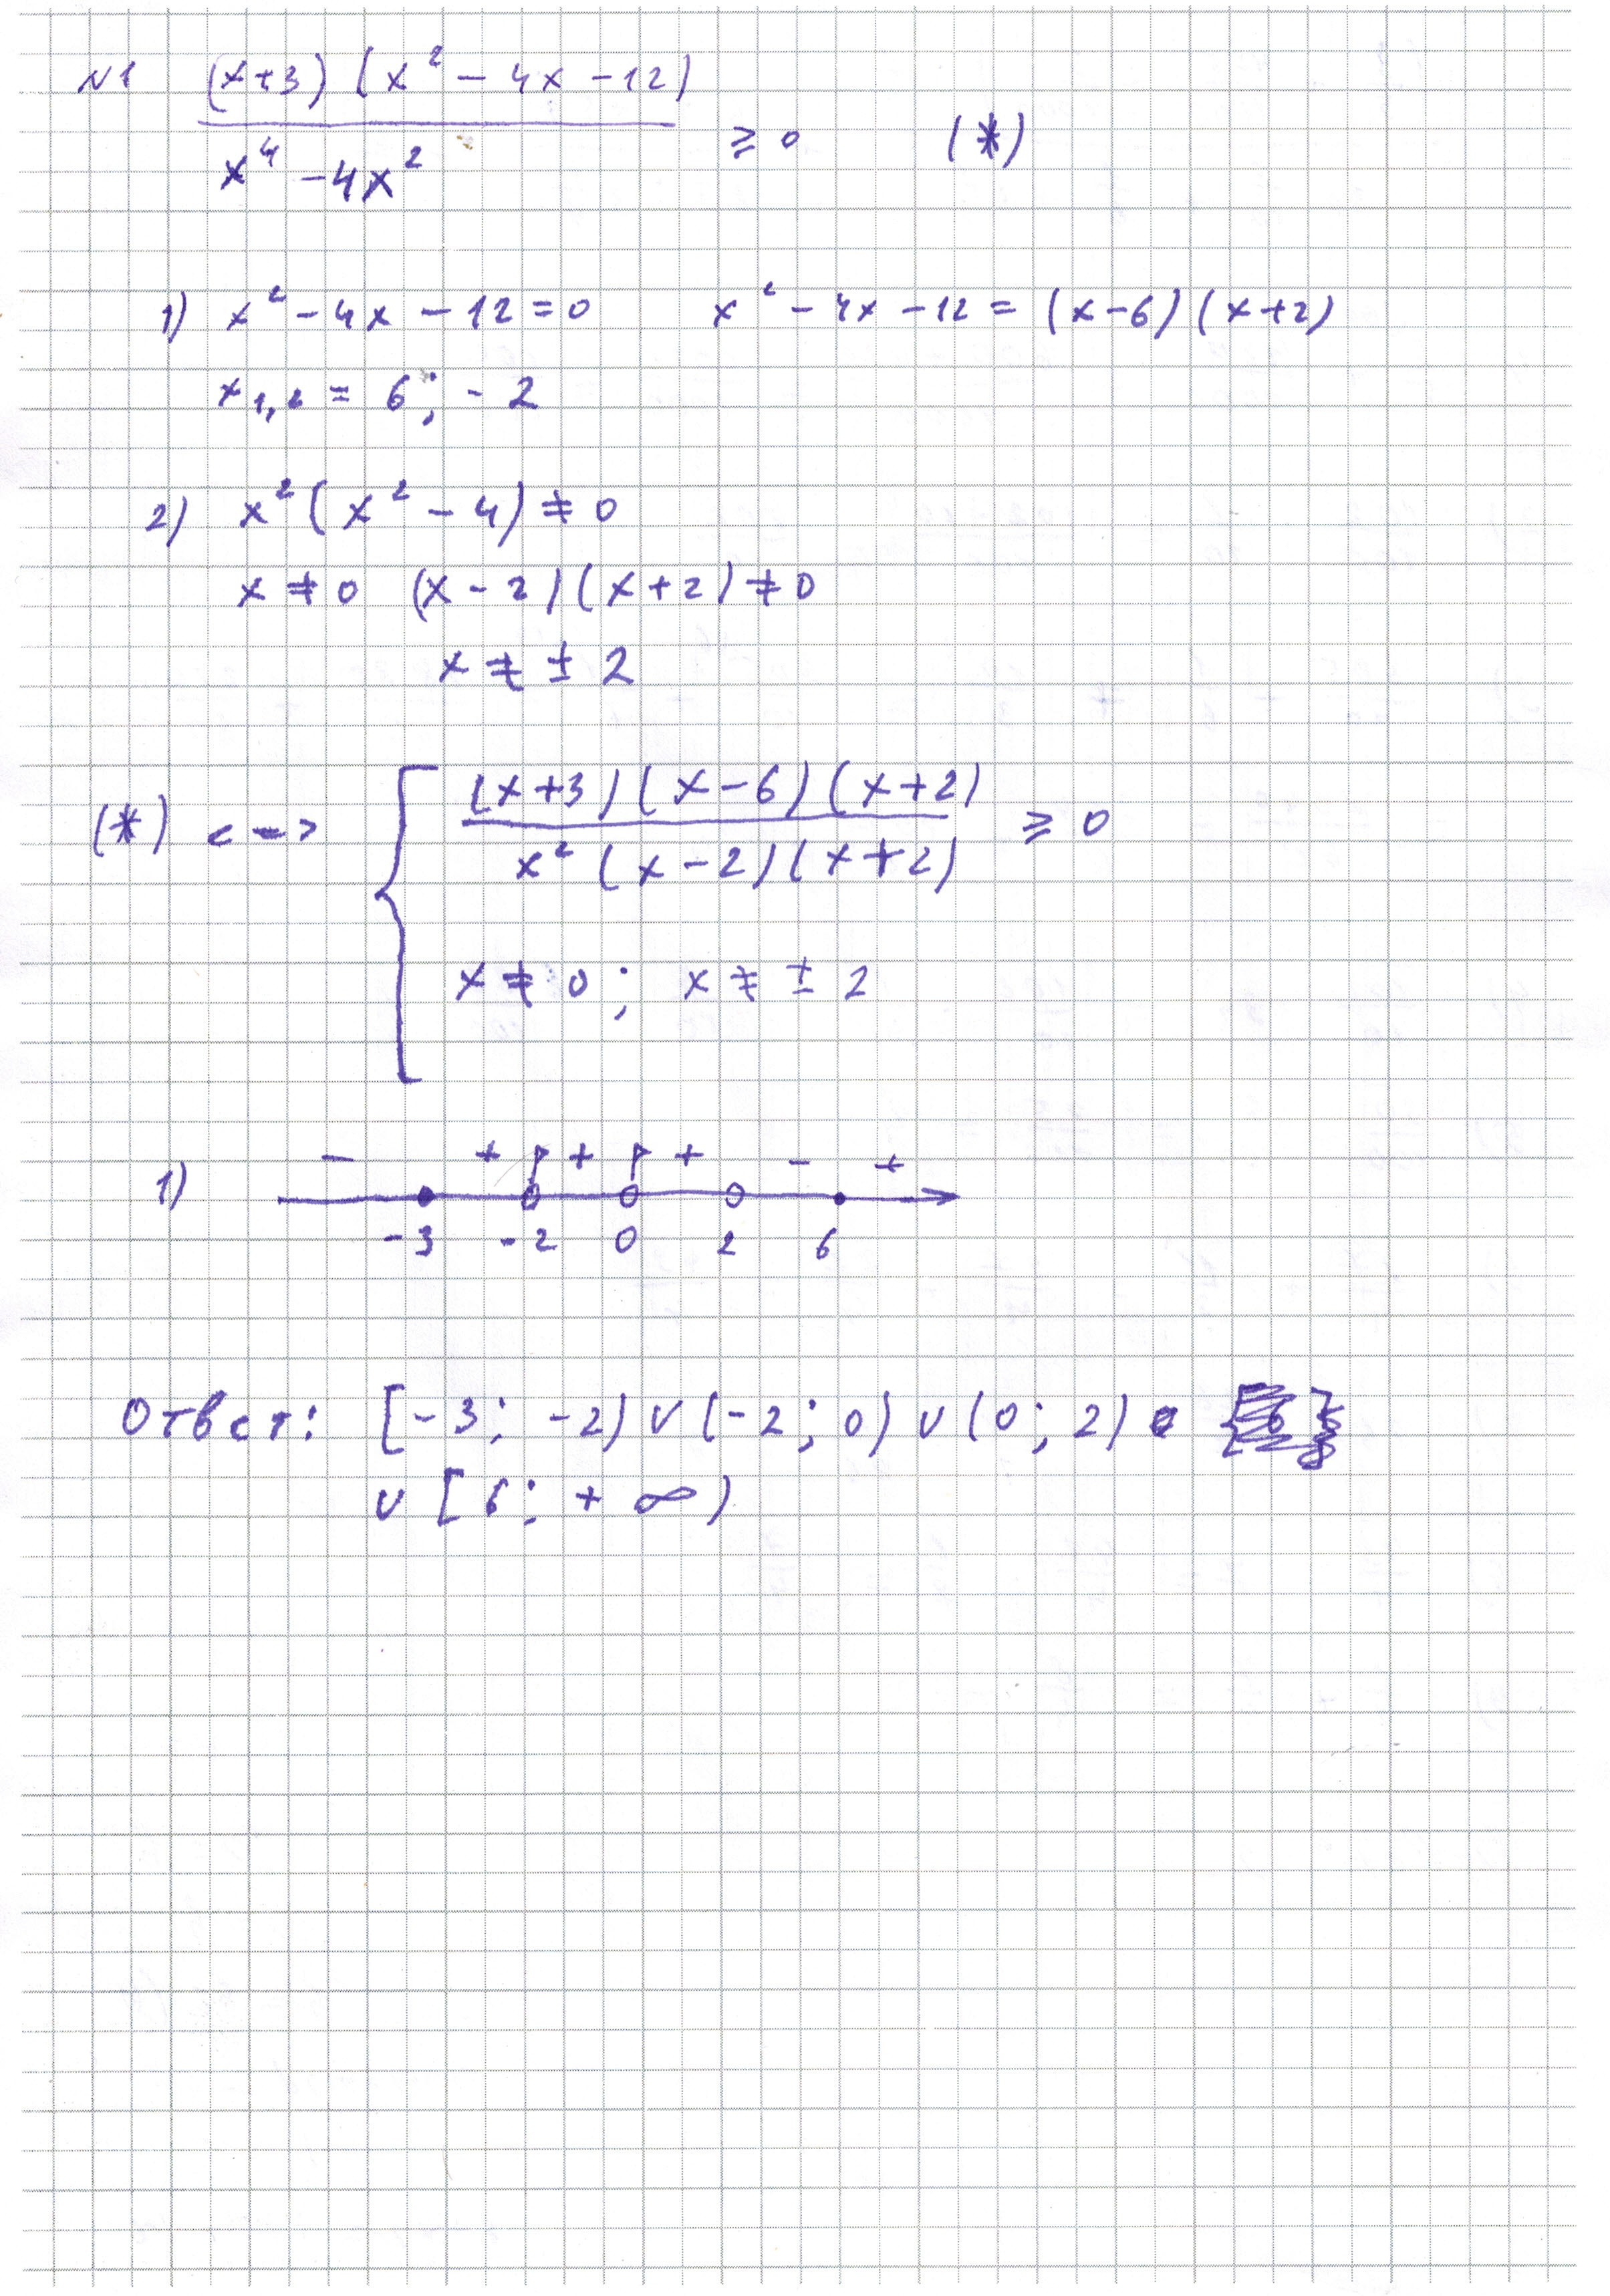 N1 (x+3)(x² - 4x - 12)
x⁴ - 4x² ≥ 0 (*)
1) x² - 4x - 12 = 0 x² - 4x - 12 = (x-6)(x+2)
x₁,₂ = 6; -2
2) x²(x² - 4) ≠ 0
x ≠ 0 (x-2)(x+2) ≠ 0
x ≠ ± 2
(*) <-> { (x+3)(x-6)(x+2)
x²(x-2)(x+2) ≥ 0
x ≠ 0; x ≠ ± 2
1) - + + + - +
-3 -2 0 2 6
Ответ: [-3; -2) ∪ (-2; 0) ∪ (0; 2)
∪ [6; +∞)